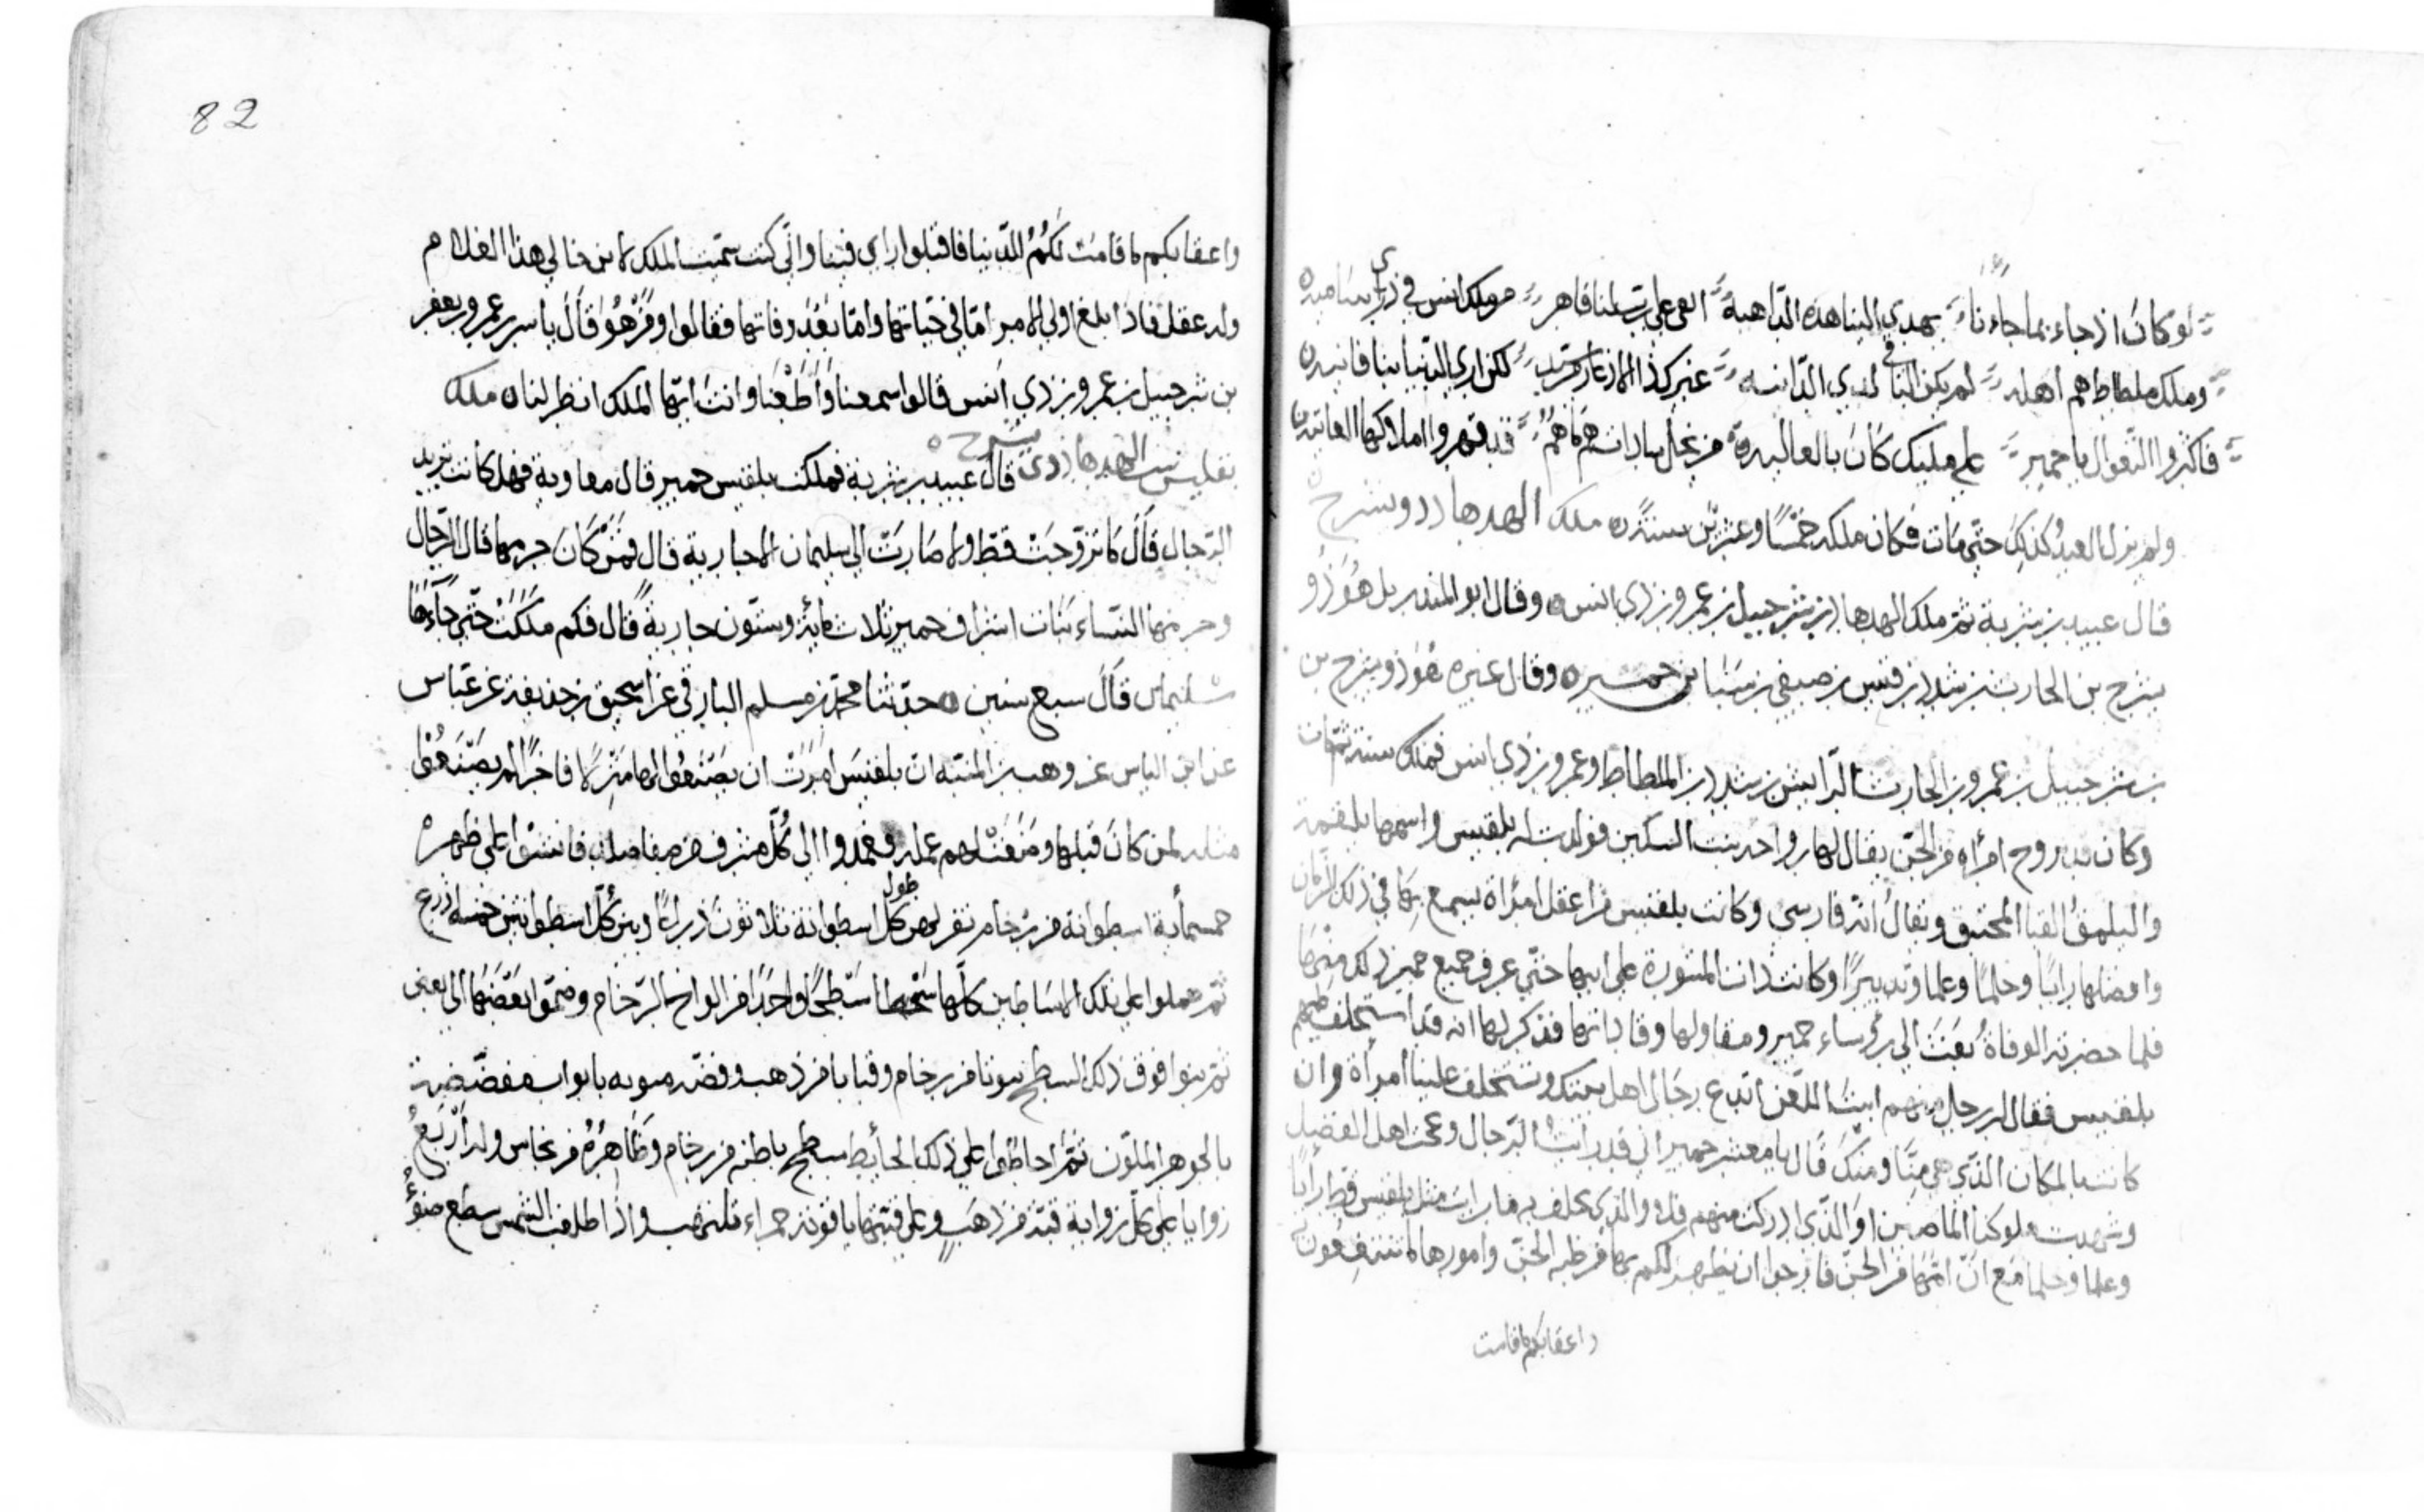 لو كان اذ جاء بما جاءنا بهدي الينا هذه الداهية
وملك ملطاط هم اهله لم يكن لدي الدانية
فاكثروا التعوال يا حمير على مليك كان بالعالية قد قهروا املاكها العاتية
ولم يزل العبد كذلك حتى مات فكان ملكه خمسا وعشرين سنة ملك الهدهاد ذو شرح
قال عبيد بن شرية ثم ملك الهدهاد بن شرحبيل بن عمرو بن ذي انس وقال ابو المنذر بل هو ذو
يشرح بن الحارث بن شدد بن قيس بن صيفي بن سبا بن حمير وقال غيره هو ذو يشرح بن
بن شرحبيل بن عمرو بن الحارث الرايش بن شدد بن الملطاط وعمرو بن ذي انس فملك سنة ثم مات
وكان قد تزوج امرأة من الجن يقال لها رواحة بنت السكن فولدت له بلقيس واسمها يلقمة
واليلمق القبا المحشو ويقال انه فارسي وكانت بلقيس من اعقل امرأة يسمع بها في ذلك الزمان
وافضلها رايا وحلما وعلما وتدبيرا وكانت ذات المشورة على ابيها حتى عرف جميع حمير ذلك منها
فلما حضرته الوفاة بعث الى رؤساء حمير ومقاولها وقاداتها فذكر لها انه قد استخلف عليهم
بلقيس فقال له رجل منهم ابيت اللعن اتدع رجال اهل بيتك وتستخلف علينا امرأة وان
كانت بالمكان الذي هي منا ومنك قال يا معشر حمير اني قد رايت الرجال وعجمت اهل الفضل
وشهدت ملوكنا الماضين والذي ادركت منهم فلا والذي يحلف به ما رايت مثل بلقيس قط رايا
وعلما وحلما مع ان امها من الجن فارجوا ان يظهر لكم بها من طب الجن وامورها ما تنتفعون به
واعقابكم ما قامت
82
واعقابكم ما قامت لكم الدنيا فاقبلوا راي فيها واني كنت سميت الملك لابن خالي هذا الغلام
وله عقل فاذا بلغ اولي الامر اما في حياتها واما بعد وفاتها فقالوا ومن هو قال ياسر بن عمرو بن يعفر
بن شرحبيل بن عمرو بن ذي انس قالوا سمعنا واطعنا وانت ايها الملك انظر لنا ملك
بلقيس بنت الهدهاد ذي يشرح قال عبيد بن شرية فملكت بلقيس حمير قال معاوية فهل كانت تريد
الرجال قال ما تزوجت قط ولا صارت الى سليمان الا جارية قال فمن كان حرسها قال الرجال
وحرسها النساء بنات اشراف حمير ثلاث مائة وستون جارية قال فكم ملكت حتى جاءها
سليمان قال سبع سنين حدثنا محمد بن مسلم البارقي عن اسحق بن حذيفة عن عباس
عن ابي الياس عن وهب بن المنبه ان بلقيس امرت ان يصنعوا لها منزلا فاخرا لم يصنعوا
مثله لمن كان قبلها ووصفت لهم عمله فعمدوا الى كل مشرف من مفاصلات فانشوا على ظهره
خمسمأية اسطوانة من رخام طول كل اسطوانة ثلاثون ذراعا وبين كل اسطوانتين خمسة اذرع
ثم عملوا على تلك الاساطين كلها سطحا واحدا من الواح الرخام وضموا بعضها الى بعض
ثم بنوا فوق ذلك السطح بيوتا من رخام وقبابا من ذهب وفضة مبوبه بابواب مفضضة
بالجوهر الملون ثم احاطوا على ذلك الحائط سطح باطنه من رخام وظاهره من نحاس وله اربع
زوايا على كل زواية قبة من ذهب وعلى قبتها ياقوتة حمراء تلتهب واذا طلعت الشمس سطع ضوء